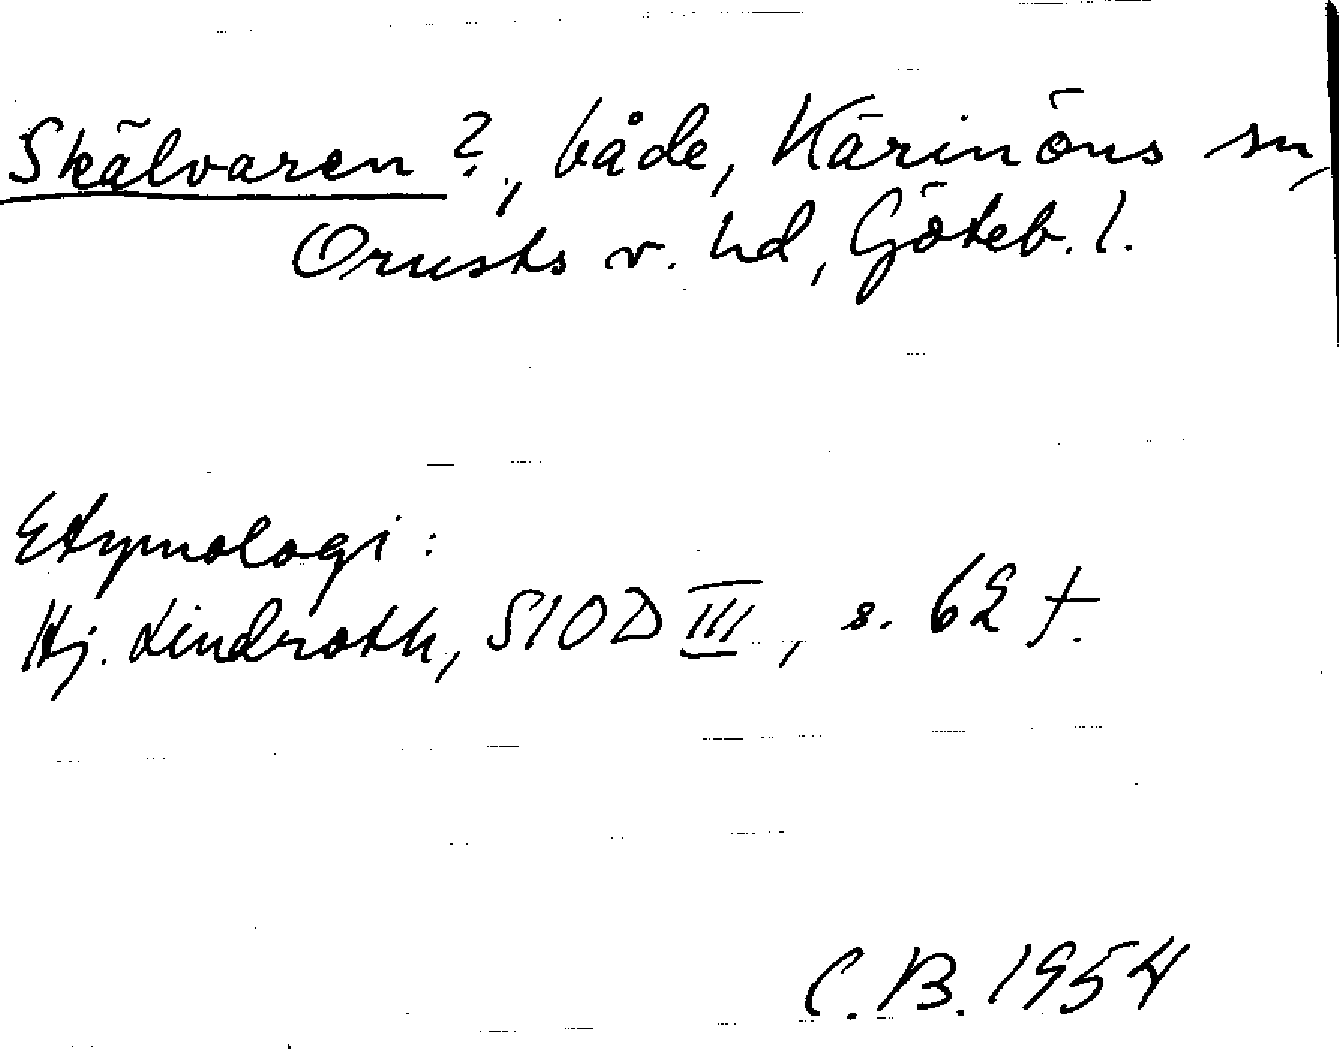 Skälvaren?, både, Käringöns sn,
Orusts v. hd, Göteb. l.
Etymologi:
Hj. Lindroth, SIOD III, s. 62 f.
C.B. 1954